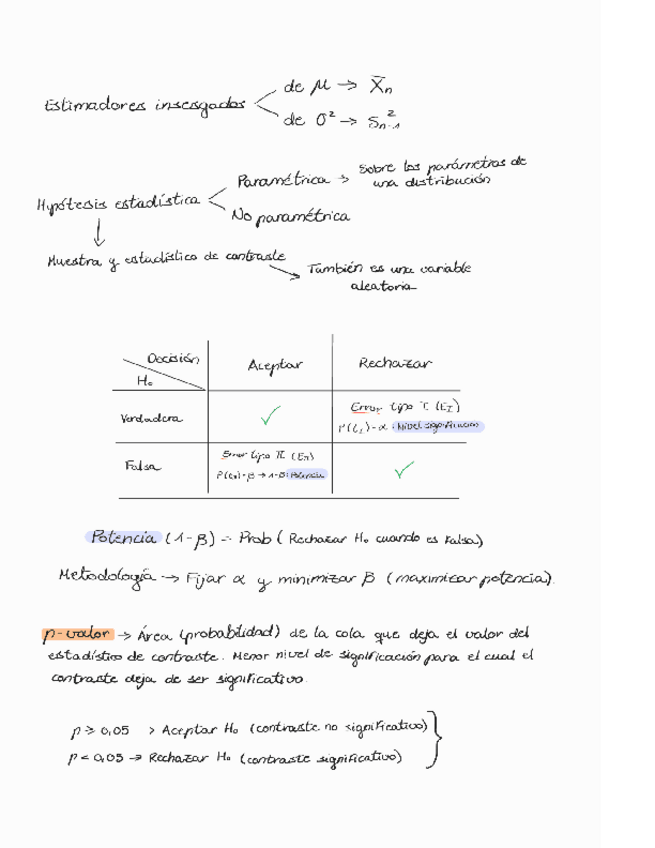 Estimadores insesgados
de μ → X̄n
de σ² → S²n-1
Hypótesis estadística
Paramétrica → Sobre los parámetros de
una distribución
No paramétrica
Muestra y estadístico de contraste
También es una variable
aleatoria
Decisión
H₀
Aceptar
Rechazar
Verdadera
✓
Error tipo I (E_I)
P(E_I) = α : Nivel significación
Falsa
Error tipo II (E_II)
P(E_II) = β → 1-β : Potencia
✓
Potencia (1-β) = Prob (Rechazar H₀ cuando es Falsa)
Metodología → Fijar α y minimizar β (maximizar potencia).
p-valor → Área (probabilidad) de la cola que deja el valor del
estadístico de contraste. Menor nivel de significación para el cual el
contraste deja de ser significativo.
p ≥ 0,05 → Aceptar H₀ (contraste no significativo)
p < 0,05 → Rechazar H₀ (contraste significativo)